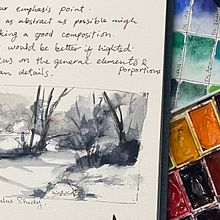 ur emphasis point.
as abstract as possible migh
king a good composition.
would be better if lighted.
cus on the general elements &
porportions
an details.
lue Study